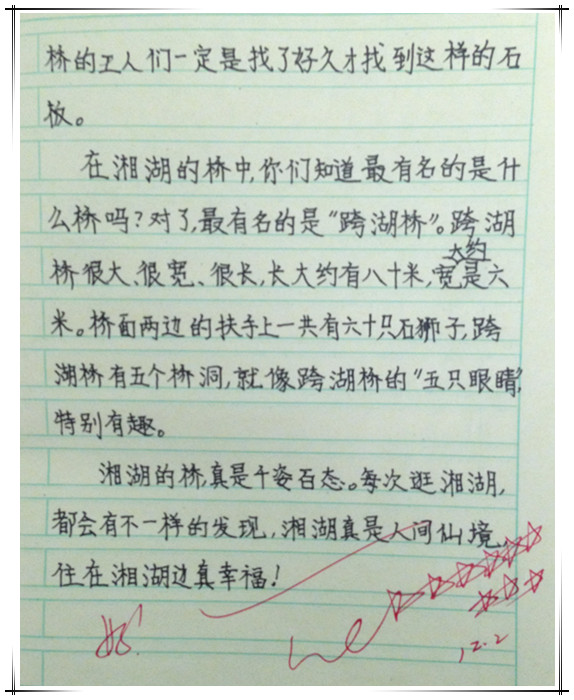 桥的工人们一定是找了好久才找到这样的石
板。
在湘湖的桥中,你们知道最有名的是什
么桥吗?对了,最有名的是“跨湖桥”。跨湖
大约
桥很大、很宽、很长,长大约有八十米,宽是六
米。桥面两边的扶手上一共有六十只石狮子,跨
湖桥有五个桥洞,就像跨湖桥的“五只眼睛”,
特别有趣。
湘湖的桥,真是千姿百态。每次逛湘湖,
都会有不一样的发现,湘湖真是人间仙境,
住在湘湖边真幸福!
好!
12.2